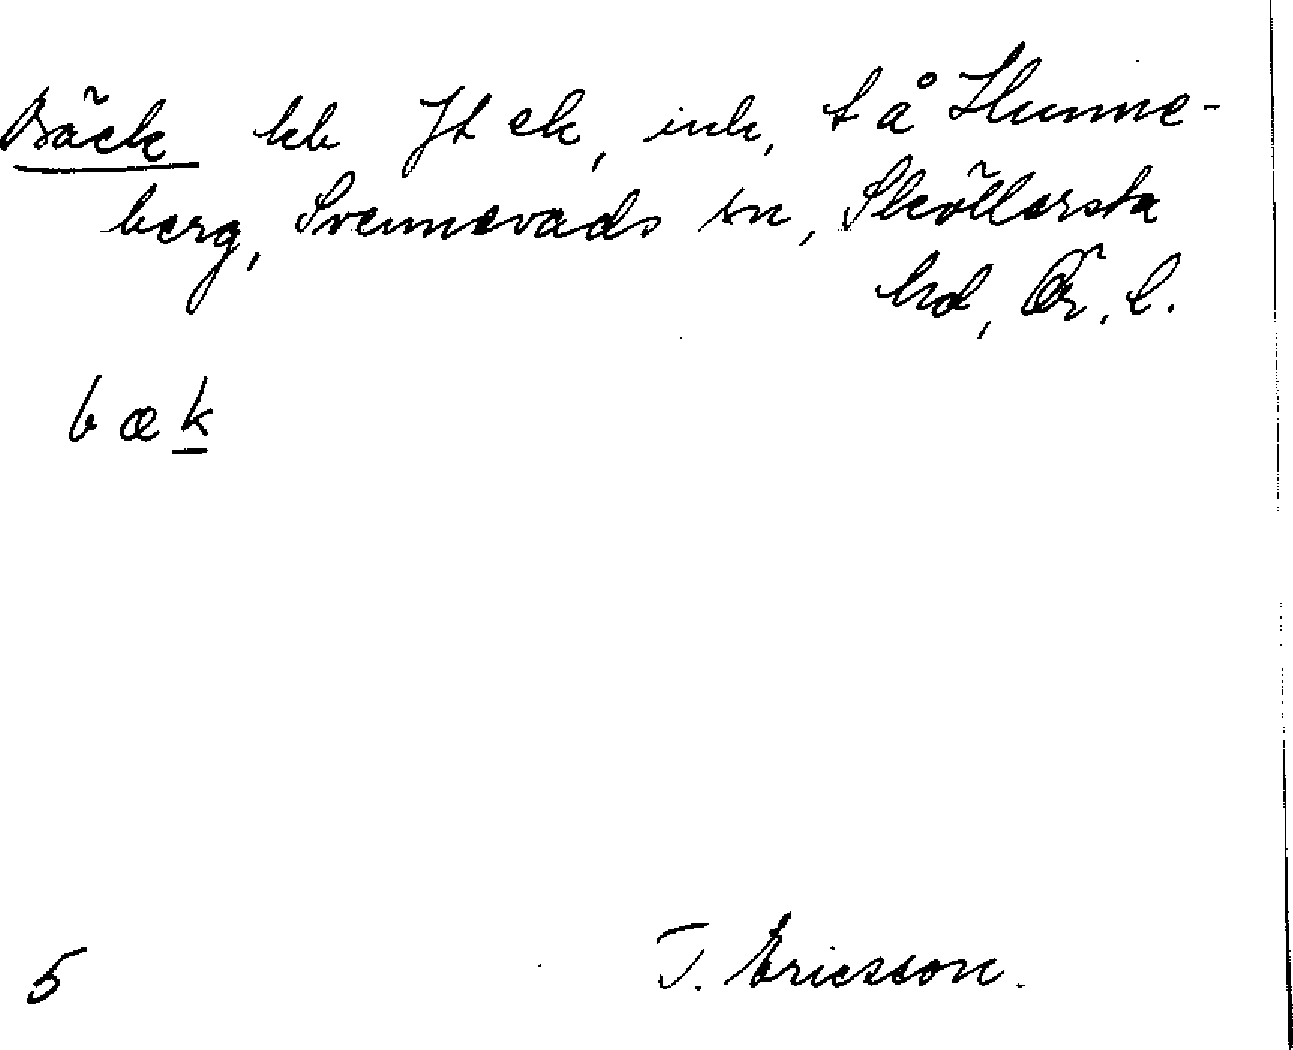 Bäck hb Jt ek, ink, t å Hunne-
berg, Svennevads sn, Sköllersta
hd, Ör. l.
bæk
5 T. Ericsson.